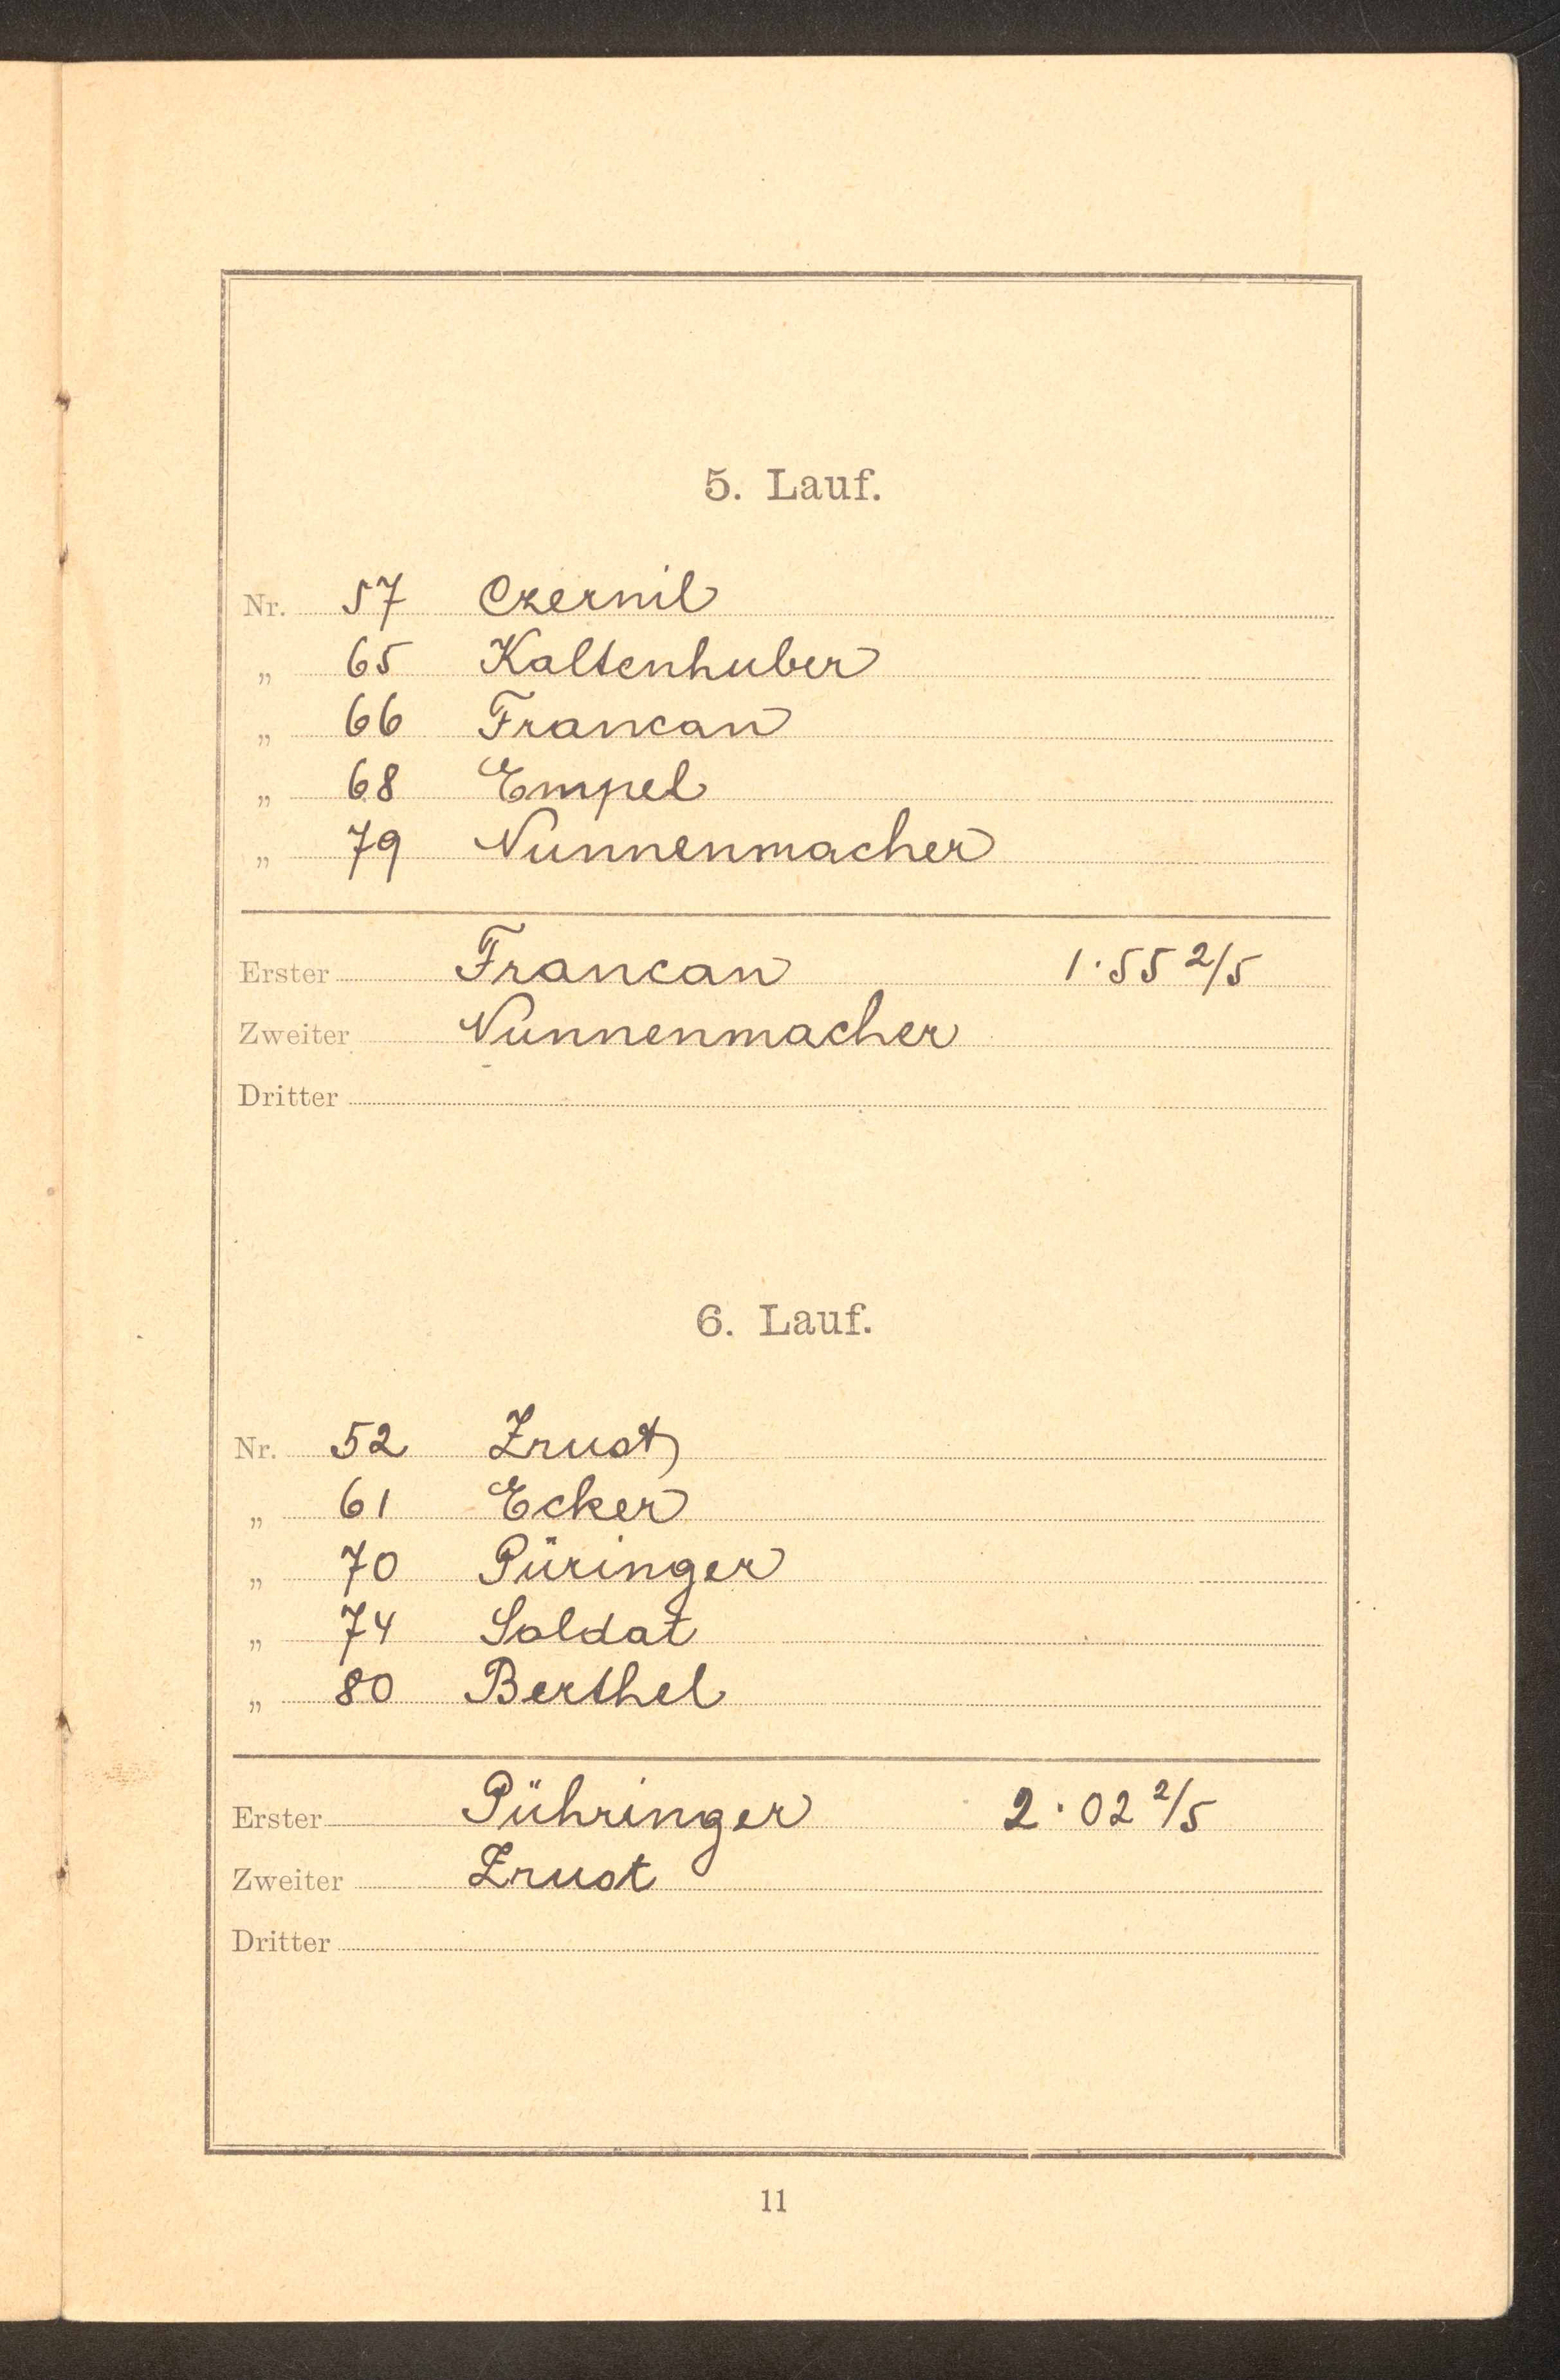 5. Lauf.
Nr. 57 Czernil
„ 65 Kaltenhuber
„ 66 Francan
„ 68 Empel
„ 79 Nunnenmacher
Erster Francan 1·55 2/5
Zweiter Nunnenmacher
Dritter
6. Lauf.
Nr. 52 Zrust
„ 61 Ecker
„ 70 Püringer
„ 74 Soldat
„ 80 Berthel
Erster Pühringer 2·02 2/5
Zweiter Zrust
Dritter
11